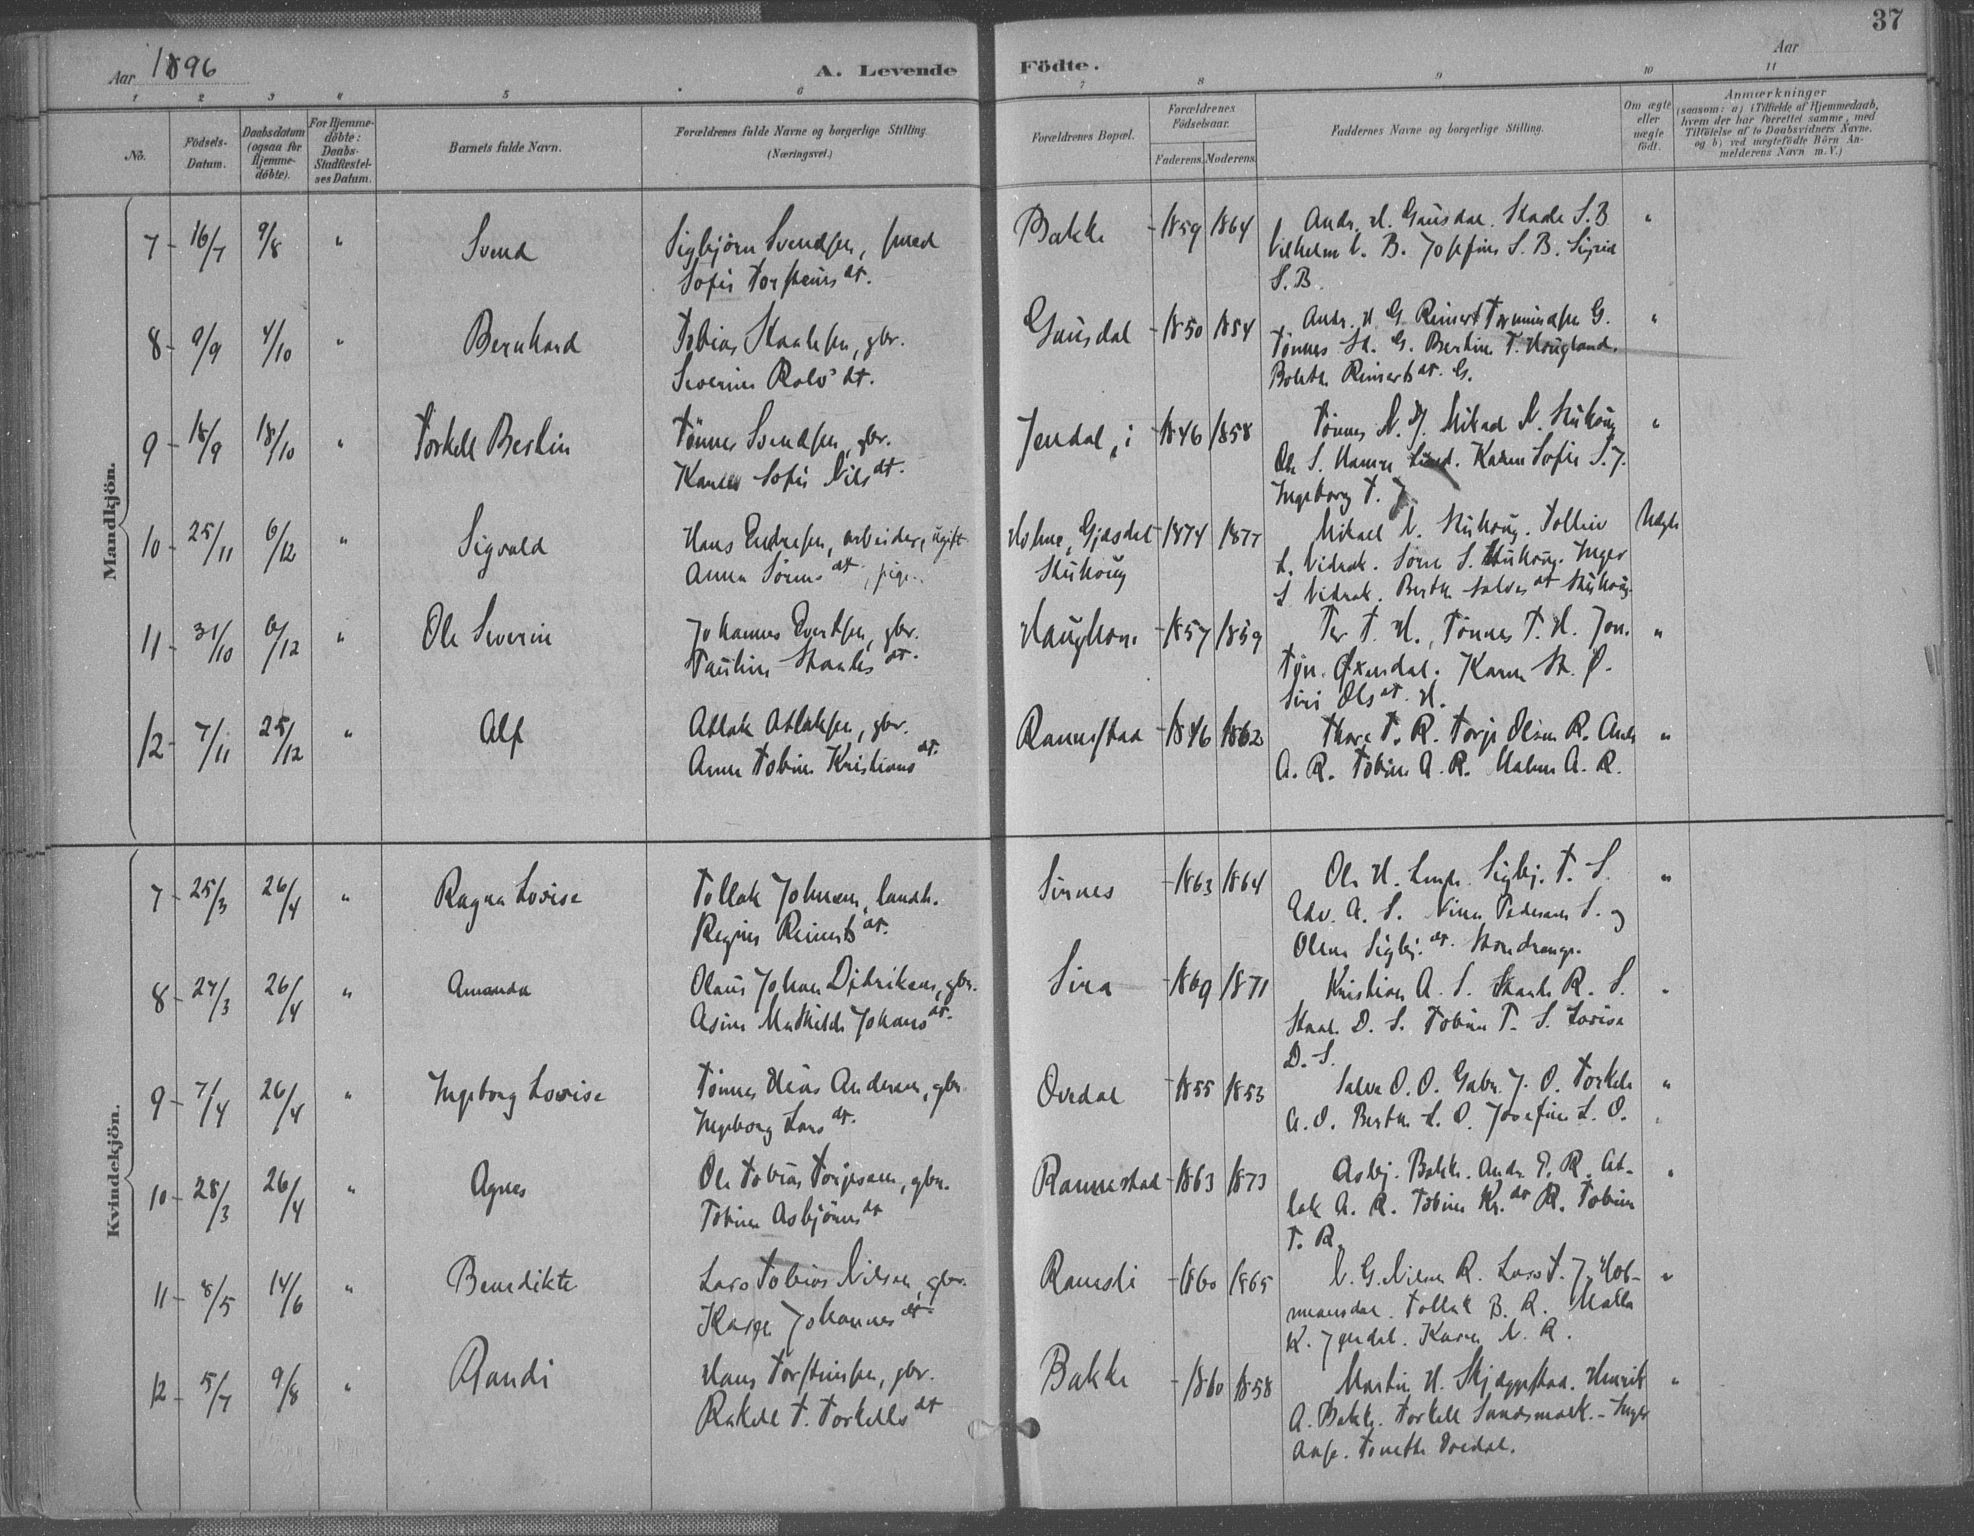 37
Aar 1896
A. Levende Födte.
Aar
1 2 3 4 5 6 7 8 9 10 11
No.
Födsels-Datum.
Daabsdatum (ogsaa for Hjemme-döbte).
For Hjemme-döbte: Daabs-Stadfæstel-ses Datum.
Barnets fulde Navn.
Forældrenes fulde Navne og borgerlige Stilling
(Næringsvei.)
Forældrenes Bopæl.
Forældrenes Födselsaar.
Faderens. Moderens.
Faddernes Navne og borgerlige Stilling.
Om ægte eller uægte födt.
Anmærkninger
(saasom: a) i Tilfælde af Hjemmedaab, hvem der har forrettet samme, med Tilföielse af to Daabsvidners Navne. og b) ved uægtefödte Börn An-melderens Navn m. V.)
Mandkjön.
7 - 16/7 9/8 " Svend Sigbjörn Svendsen, smed Bakke - 1859 1864 Andr. H. Gausdal. Staale S. B "
Sofie Torsteins dt. Vilhelm B. Josefine S. B. Sigrid
S. B.
8 - 9/9 4/10 " Bernhard Tobias Staalesen, gbr. Gausdal - 1850 1854 Andr. H. G. Reinert G. "
Severine Rolvs dt. Tönnes St. G. Bertine T. Hougland.
Bolette Reinerts dt. G.
9 - 18/9 18/10 " Torkell Bertin Tönnes Svendsen, gbr. Jendal, i - 1846 1858 Tönnes N. "
Karen Sofie Nils dt. Ole S. Lund. Karen Sofie S. J.
Ingeborg T. J.
10 - 25/11 6/12 " Sigvald Hans Endresen, arbeider, ugift Holme, Gjæsdal - 1874 1877 Mikael N. Stuhoug. Uægte
Anna Sörens dt., pige. Stuhoug L. Vidrak. Sören S. Stuhoug. Inger
S. Vidrak. Berthe Salves dt Stuhoug.
11 - 31/10 6/12 " Ole Severin Johannes Evertsen, gbr. Haughom - 1857 1859 Per T. H., Tönnes T. H. "
Pauline Staales dt. Öxendal. Karen St. Ö.
Siri Ols dt. H.
12 - 7/11 25/12 " Alf Atlak Atlaksen, gbr. Rannestad - 1846 1862 Thore T. R. Torje Olsen R. "
Anne Tobine Kristians dt. A. R. Tobine A. R. Malene A. R.
Kvindekjön.
7 - 25/3 26/4 " Ragna Lovise Tollak Johnsen, landh. Sirnes - 1863 1864 Ole H. Sigbj. T. S. "
Regine Reinerts dt. Edv. A. S. Nine Pedersen S. og
Olene Sigbj. dt.
8 - 27/3 26/4 " Amanda Olaus Johan Didriksen, gbr. Sira - 1869 1871 Kristian A. S. Staale R. S. "
Asine Mathilde Johans dt. Staal. D. S. Tobine T. S. Lovise
D. S.
9 - 7/4 26/4 " Ingeborg Lovise Tönnes Elias Andersen, gbr. Ovedal - 1855 1853 Salve O. O. Gabr. J. O. Torkel "
Ingeborg Lars dt. A. O. Berthe L. O. Josefine L. O.
10 - 28/3 26/4 " Agnes Ole Tobias Torjesen, gbr. Rannestad - 1863 1873 Asbj. Bakke. Andr. T. R. At- "
Tobine Asbjörns dt lak A. R. Tobine Kr. dt R. Tobine
T. R.
11 - 8/5 14/6 " Benedikte Lars Tobias Nilsen, gbr. Ramsli - 1860 1865 N. G. Nilsen R. Lars T. J. "
Karen Johannes dt. Tollak B. R. Malla
K. Jendal. Karen N. R.
12 - 5/7 9/8 " Randi Hans Torsteinsen, gbr. Bakke - 1860 1858 Martin H. Skjeggestad. Henrik "
Rakel T. Torkells dt A. Bakke. Torkell Sandsmark. - Inger
Tonette Ovedal.